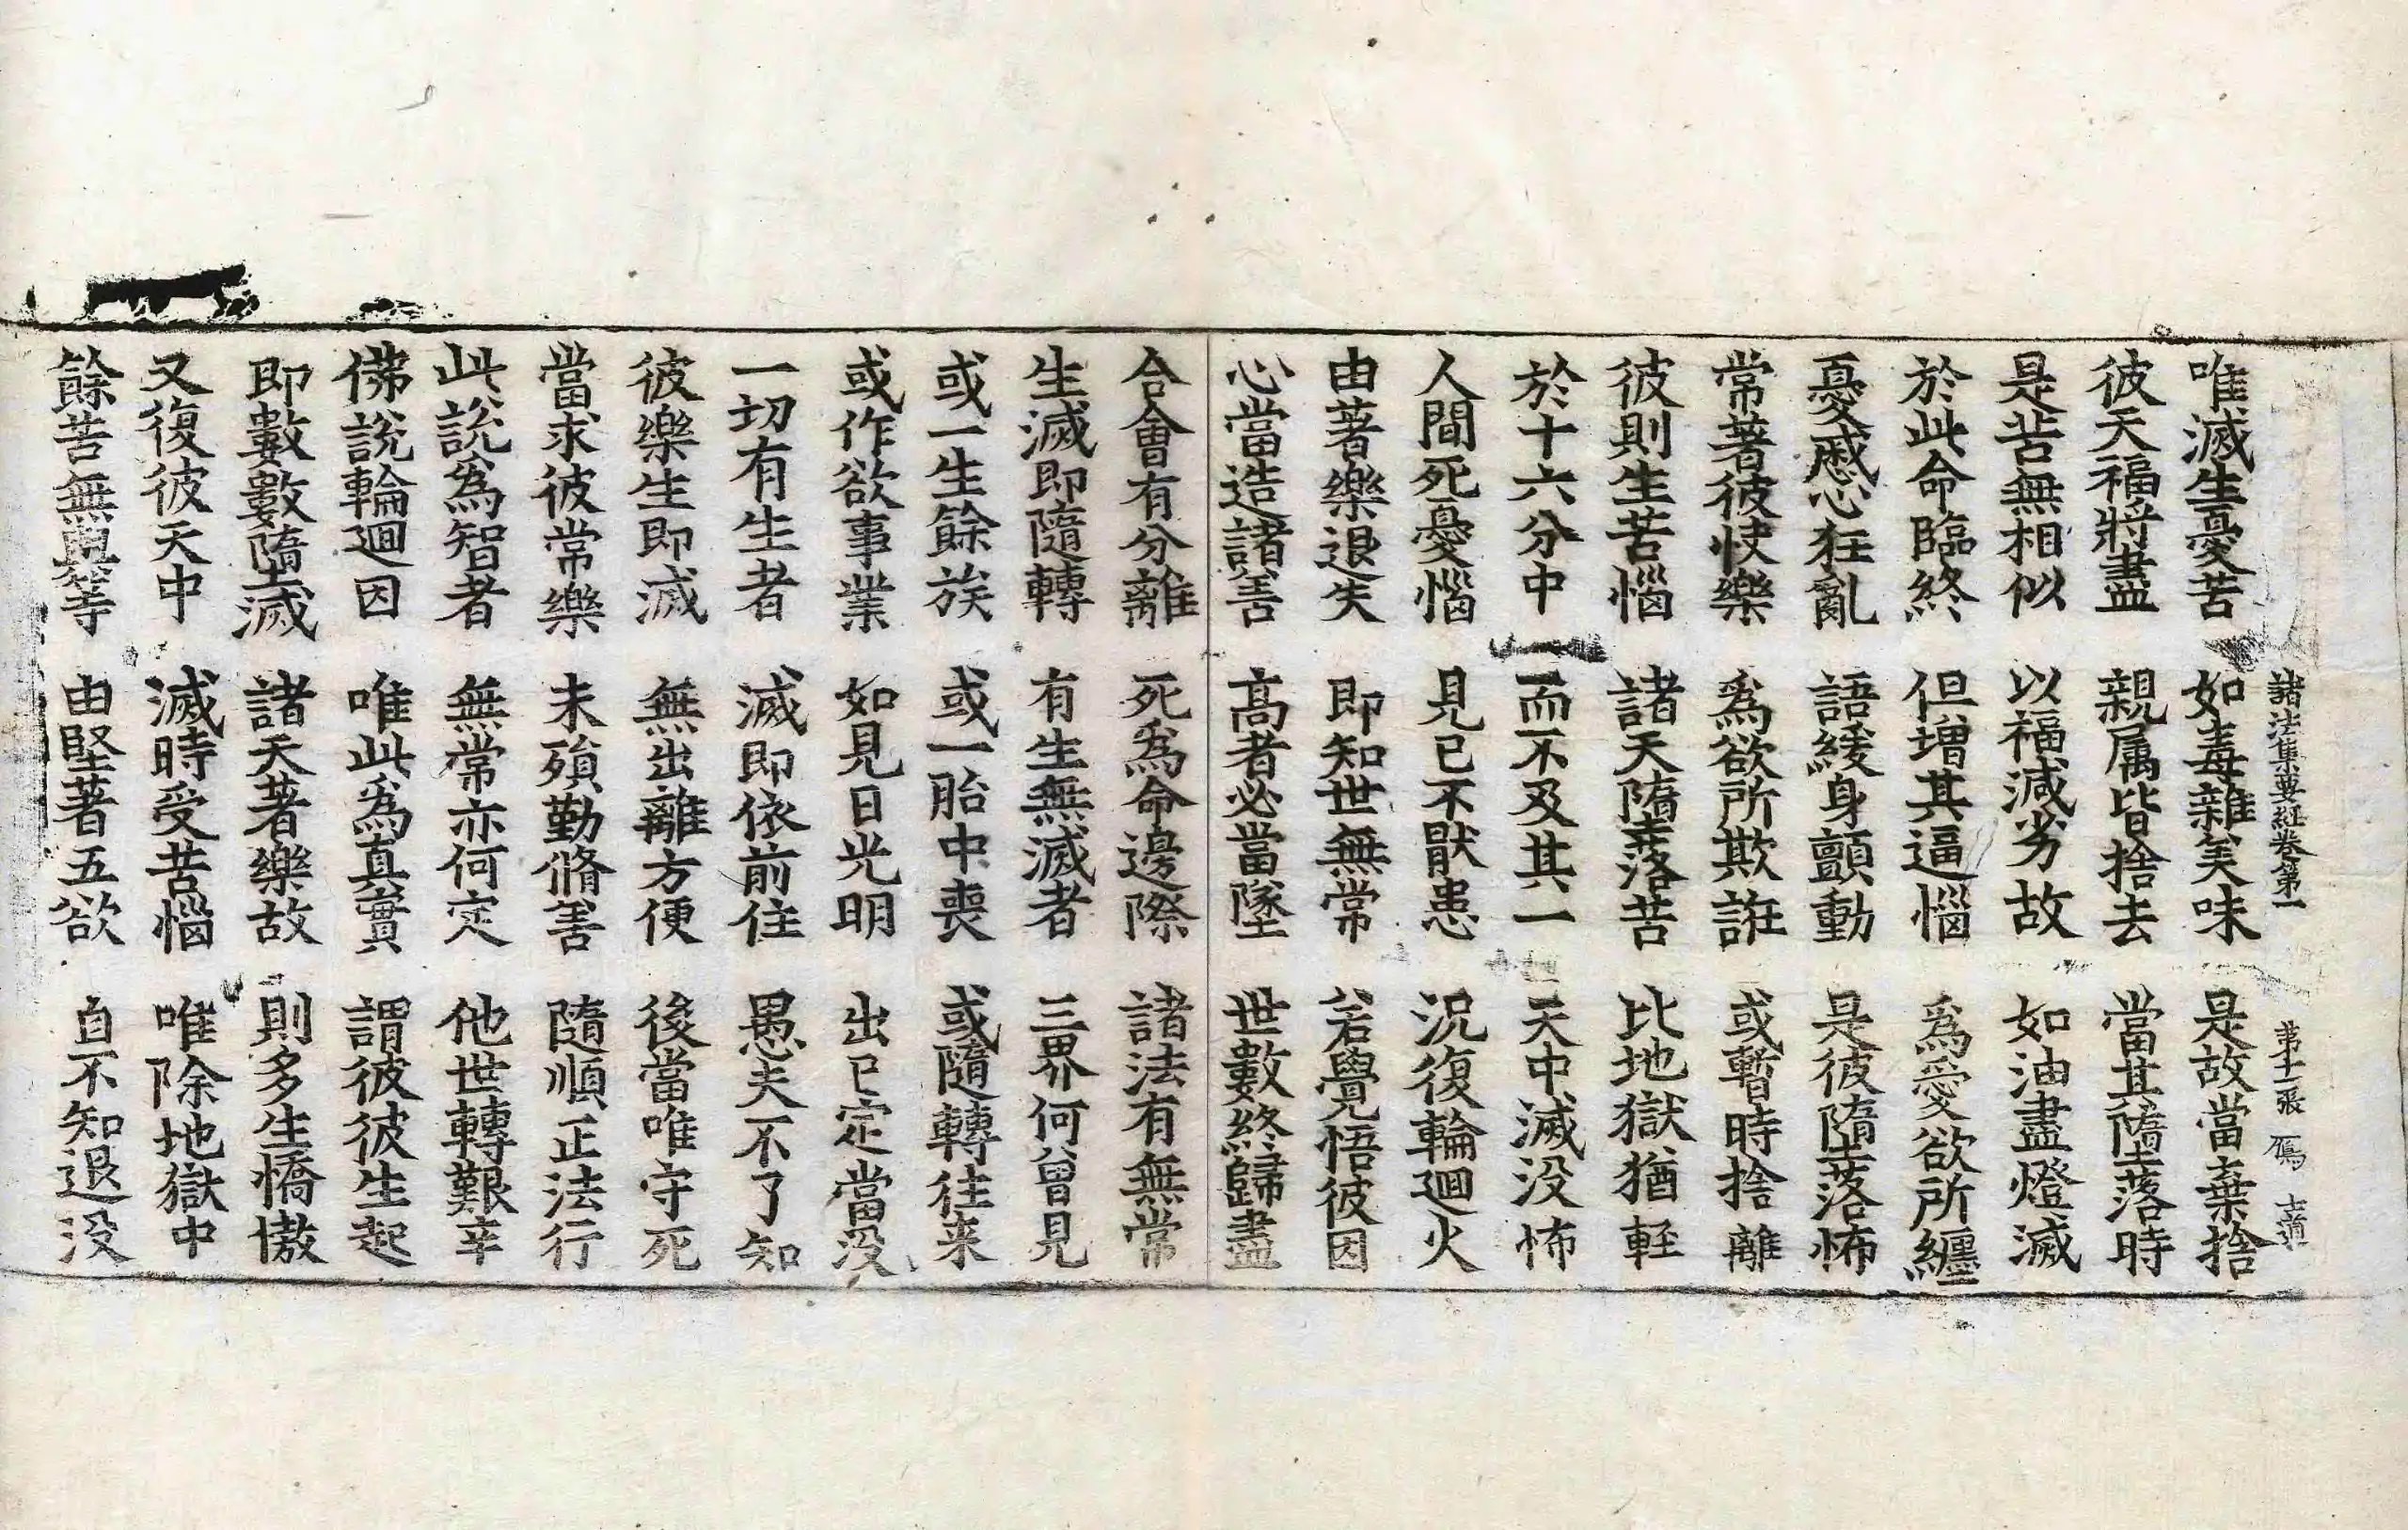 諸法集要經卷第一 第十二張 鴈 志道
唯滅生憂苦 如毒雜美味 是故當棄捨
彼天福將盡 親属皆捨去 當其墮落時
是苦無相似 以福減劣故 如油盡燈滅
於此命臨終 但增其逼惱 爲愛欲所纏
憂慼心狂亂 語緩身顫動 是彼墮落怖
常著彼快樂 爲欲所欺誑 或暫時捨離
彼則生苦惱 諸天墮落苦 比地獄猶軽
於十六分中 而不及其一 天中滅没怖
人間死憂惱 見已不猒患 況復輪迴火
由著樂退失 即知世無常 若覺悟彼因
心當造諸善 髙者必當墜 世數終歸盡
合會有分離 死爲命邊際 諸法有無常
生滅即隨轉 有生無滅者 三界何曾見
或一生餘族 或一胎中喪 或隨轉往来
或作欲事業 如見日光明 出已定當没
一切有生者 滅即依前住 愚夫不了知
彼樂生即滅 無出離方便 後當唯守死
當求彼常樂 未殞勤脩善 隨順正法行
此說爲智者 無常亦何定 他世轉艱辛
佛說輪迴因 唯此爲真實 謂彼彼生起
即數數墮滅 諸天著樂故 則多生憍慠
又復彼天中 滅時受苦惱 唯除地獄中
餘苦無與等 由堅著五欲 自不知退没